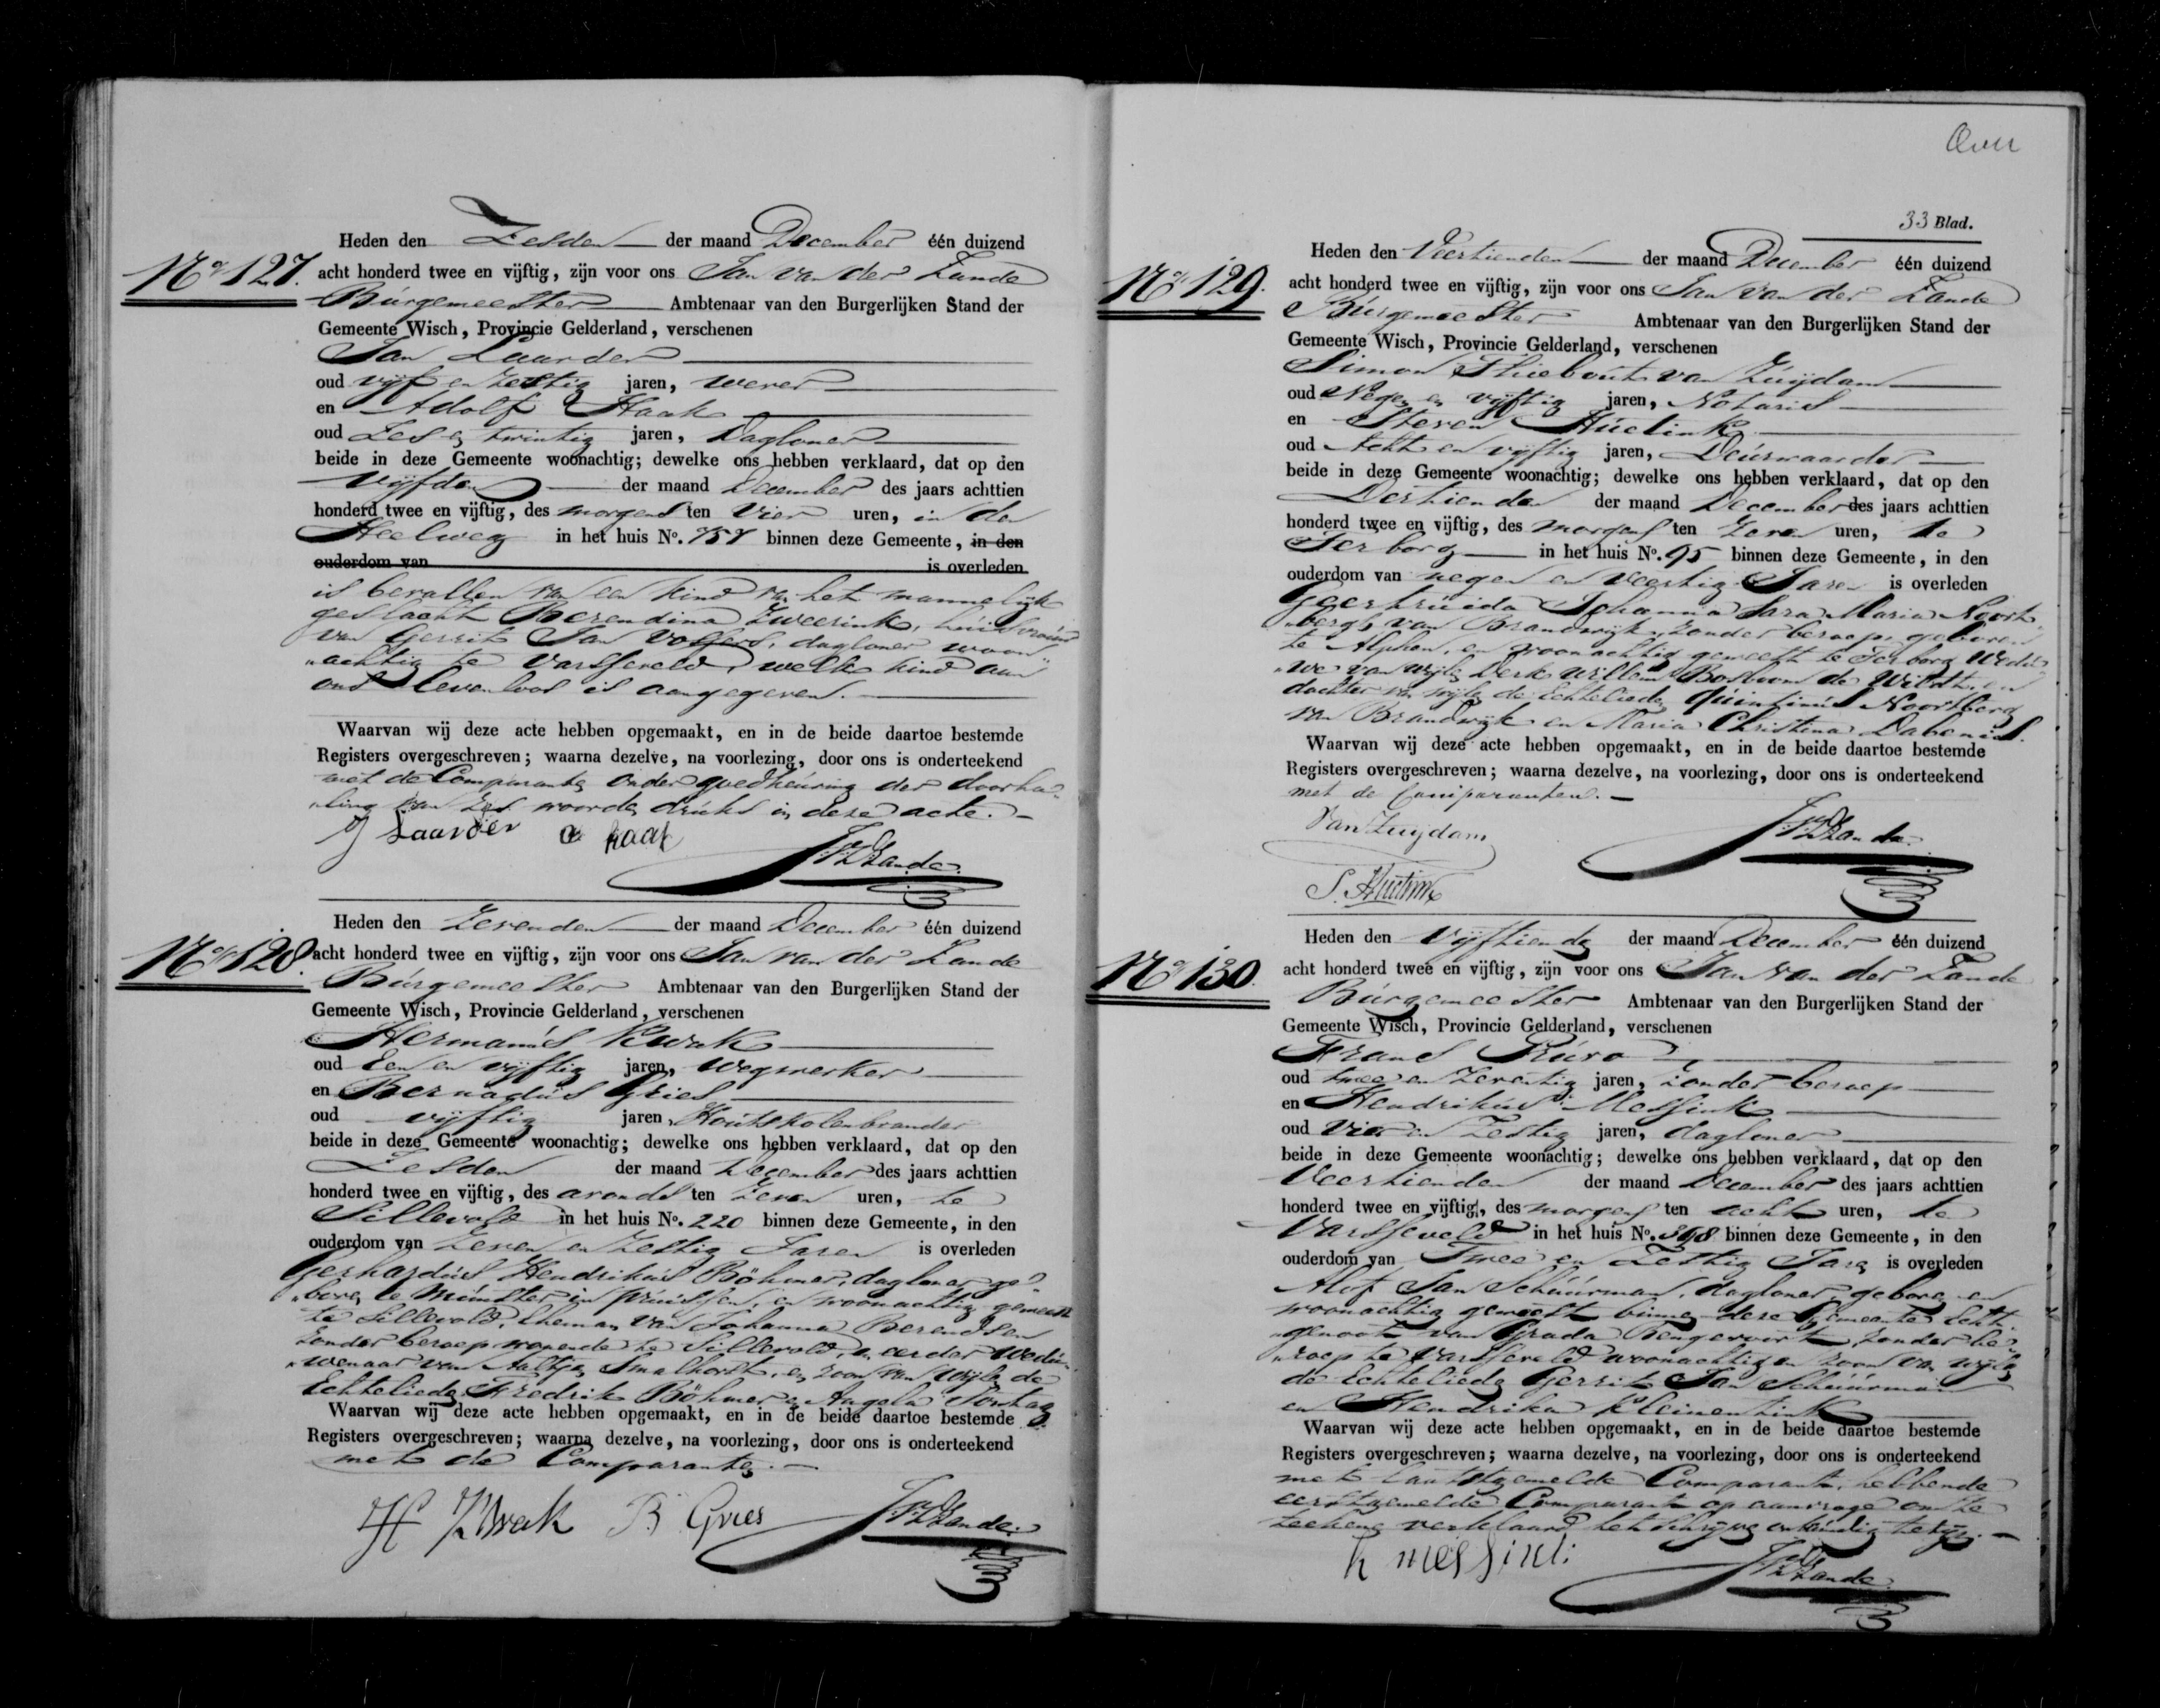 Heden den Zesden der maand December één duizend
No 127. acht honderd twee en vijftig, zijn voor ons Jan van der Zande
Burgemeester Ambtenaar van den Burgerlijken Stand der
Gemeente Wisch, Provincie Gelderland, verschenen
Jan Laarder
oud vijf en zestig jaren, wever
en Adolf Haak
oud Zes en twintig jaren, Dagloner
beide in deze Gemeente woonachtig; dewelke ons hebben verklaard, dat op den
Vijfden der maand December des jaars achttien
honderd twee en vijftig, des morgens ten Vier uren, in den
Heelweg in het huis No. 757 binnen deze Gemeente, in den
ouderdom van is overleden
is bevallen van een kind van het mannelijk
geslacht Berendina Zweerink, huisvrouw
van Gerrit Jan Volfers, dagloner woon„
„achtig te Varsseveld, welk kind aan
ons levenloos is aangegeven.
Waarvan wij deze acte hebben opgemaakt, en in de beide daartoe bestemde
Registers overgeschreven; waarna dezelve, na voorlezing, door ons is onderteekend
met de Comparanten onder goedkeuring der doorha„
„ling van zes woorden druks in deze acte.
J Laarder a haak
J.v.D.Zande.
Heden den Zevenden der maand December één duizend
No 128. acht honderd twee en vijftig, zijn voor ons Jan van der Zande
Burgemeester Ambtenaar van den Burgerlijken Stand der
Gemeente Wisch, Provincie Gelderland, verschenen
Hermanus Kwak
oud Een en vijftig jaren, wegwerker
en Bernadus Gries
oud vijftig jaren, Houtskolenbrander
beide in deze Gemeente woonachtig; dewelke ons hebben verklaard, dat op den
Zesden der maand December des jaars achttien
honderd twee en vijftig, des avonds ten Zeven uren, te
Sillevold in het huis No. 220 binnen deze Gemeente, in den
ouderdom van Zeven en Zestig Jaren is overleden
Gerhardus Hendrikus Böhmer, dagloner, ge„
„boren te Munster in Pruissen, en woonachtig geweest
te Sillevold, Eheman van Johanna Berendsen
zonder beroep wonende te Sillevold, en eerder Wedu„
„wenaar van Aaltjen Smalhorst, en zoon van wijlen de
Echtelieden Fredrik Böhmer en Angela Sontag
Waarvan wij deze acte hebben opgemaakt, en in de beide daartoe bestemde
Registers overgeschreven; waarna dezelve, na voorlezing, door ons is onderteekend
met de Comparanten.
H Kwak B Gries J.v.D.Zande.
Over
33 Blad.
Heden den Veertienden der maand December één duizend
No 129. acht honderd twee en vijftig, zijn voor ons Jan van der Zande
Burgemeester Ambtenaar van den Burgerlijken Stand der
Gemeente Wisch, Provincie Gelderland, verschenen
Simon Thiebout van Zuijdam
oud Negen en vijftig jaren, Notaris
en Steven Huelink
oud Acht en vijftig jaren, Deurwaarder
beide in deze Gemeente woonachtig; dewelke ons hebben verklaard, dat op den
Dertienden der maand December des jaars achttien
honderd twee en vijftig, des morgens ten Zeven uren, te
Terborg in het huis No. 95 binnen deze Gemeente, in den
ouderdom van negen en Veertig Jaren is overleden
Geertruida Johanna Sara Maria Noort„
„berg van Brandwijk, zonder beroep, geboren
te Alphen, en woonachtig geweest te Terborg Wedu„
„we van wijlen Derk Willem Bosboom de Wildt, en
dochter van wijlen de Echtelieden Quintinus Noortberg
van Brandwijk en Maria Christina
Waarvan wij deze acte hebben opgemaakt, en in de beide daartoe bestemde
Registers overgeschreven; waarna dezelve, na voorlezing, door ons is onderteekend
met de Comparanten.
Van Zuijdam J.v.D.Zande.
S. Huelink
Heden den Vijftienden der maand December één duizend
No 130. acht honderd twee en vijftig, zijn voor ons Jan van der Zande
Burgemeester Ambtenaar van den Burgerlijken Stand der
Gemeente Wisch, Provincie Gelderland, verschenen
Frans
oud twee en Zeventig jaren, zonder beroep
en Hendrikus Messink
oud Vier en Zestig jaren, dagloner
beide in deze Gemeente woonachtig; dewelke ons hebben verklaard, dat op den
Veertienden der maand December des jaars achttien
honderd twee en vijftig, des morgens ten acht uren, te
Varsseveld in het huis No. 398 binnen deze Gemeente, in den
ouderdom van Twee en Zestig Jaren is overleden
Alof Jan Schuurman, dagloner, geboren en
woonachtig geweest binnen deze Gemeente Echt„
„genoot van Grada Hengevoort, zonder be„
„roep te Varsseveld woonachtig en zoon van wijlen
de Echtelieden Gerrit Jan Schuurman
en Hendrika Kleinentink
Waarvan wij deze acte hebben opgemaakt, en in de beide daartoe bestemde
Registers overgeschreven; waarna dezelve, na voorlezing, door ons is onderteekend
met laatstgemelde Comparant, hebbende
eerstgemelde Comparant op aanvrage om te
teekenen verklaard het schrijven onkundig te zijn.
h messink
J.v.D.Zande.